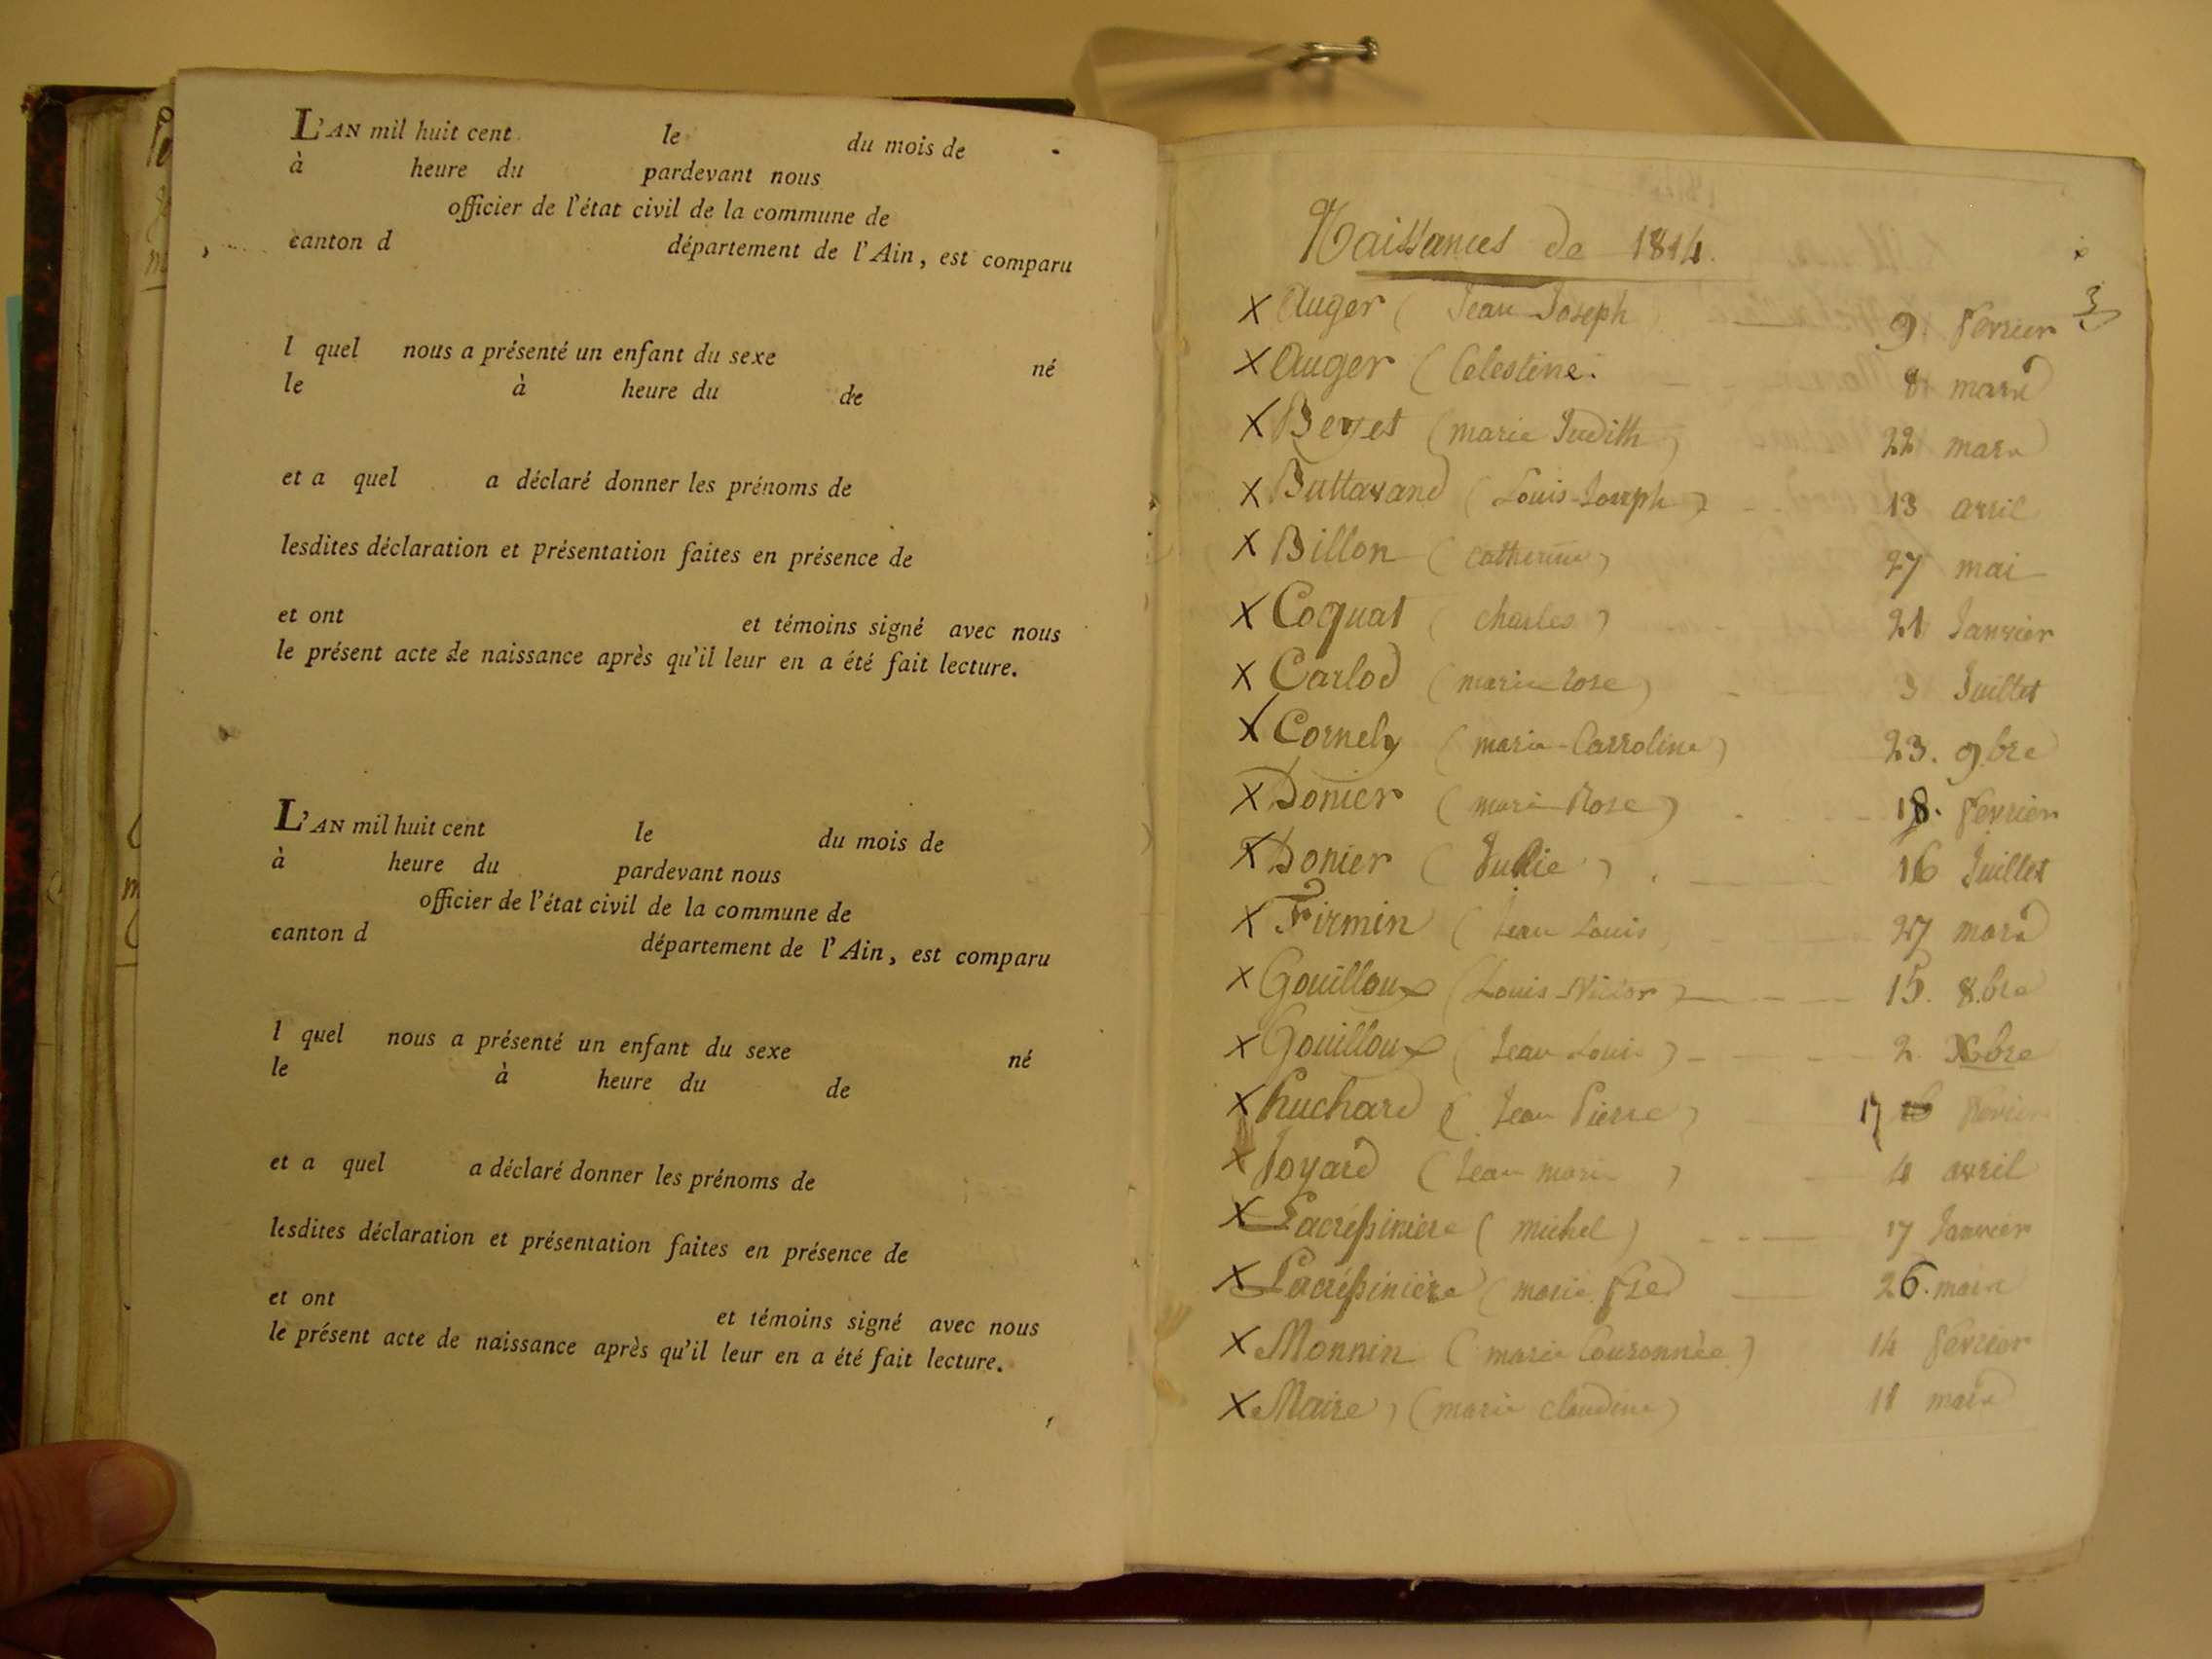 L'AN mil huit cent le du mois de
à heure du pardevant nous
officier de l'état civil de la commune de
canton d département de l'Ain, est comparu
l quel nous a présenté un enfant du sexe né
le à heure du de
et a quel a déclaré donner les prénoms de
lesdites déclaration et présentation faites en présence de
et ont et témoins signé avec nous
le présent acte de naissance après qu'il leur en a été fait lecture.
L'AN mil huit cent le du mois de
à heure du pardevant nous
officier de l'état civil de la commune de
canton d département de l'Ain, est comparu
l quel nous a présenté un enfant du sexe né
le à heure du de
et a quel a déclaré donner les prénoms de
lesdites déclaration et présentation faites en présence de
et ont et témoins signé avec nous
le présent acte de naissance après qu'il leur en a été fait lecture.
Naissances de 1814.
x Auger (Jean Joseph) 9. fevrier
x Auger (Celestine. 8 mars
x Beyet (marie Judith) 22 mars
x Buttavand (Louis-Joseph) 13 avril
x Billon (catherine) 27 mai
x Coquat (charles) 21 Janvier
x Carlod (marie rose) 3 Juillet
x Cornely (marie-Carroline) 23. 9.bre
x Donier (marie Rose) 18. fevrier
x Donier (Julie) 16 Juillet
x Firmin (Jean Louis 27 mars
x Gouilloux (Louis Victor) 15. 8.bre
x Gouilloux (Jean Louis) 2. Xbre
x huchard (Jean Pierre) 17 fevrier
x Joyard (Jean marie) 4 avril
x Lacrépiniere (michel) 17 Janvier
x Lacrépinière (marie fse) 26. mars
x Monnin (marie Couronnée) 14 fevrier
x Maire, (marie claudine) 11 mars